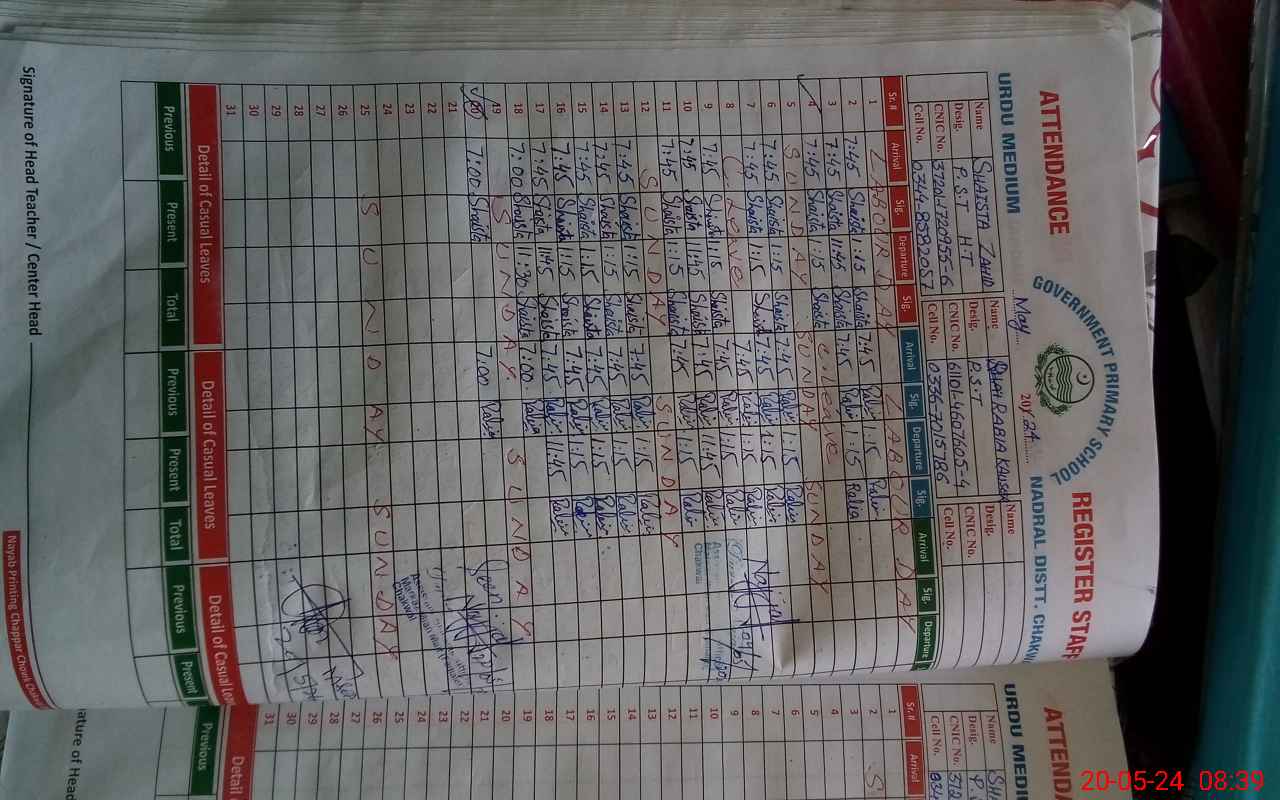 ATTENDANCE
REGISTER STAFF
GOVERNMENT PRIMARY SCHOOL
URDU MEDIUM
May
2024
NADRAL DISTT. CHAKW
Name SHAISTA ZAHID Name RABIA KAUSAR Name
Desig. P.S.T H.T Desig. P.S.T Desig.
CNIC No. CNIC No. CNIC No.
Cell No. Cell No. Cell No.
Sr.# Arrival Sig. Departure Sig. Arrival Sig. Departure Sig. Arrival Sig. Departure
1 LABOUR DAY LABOUR DAY
2 7:45 Shaista 1:15 Shaista 7:45 Rabia 1:15 Rabia
3 7:45 Shaista 11:45 Shaista 7:45 Rabia 1:15 Rabia
4 7:45 Shaista 1:15 Shaista C leave
5 SUNDAY SUNDAY SUNDAY
6 7:45 Shaista 1:15 Shaista 7:45 Rabia 1:15 Rabia
7 7:45 Shaista 1:15 Shaista 7:45 Rabia 1:15 Rabia
8 C Leave 7:45 Rabia 1:15 Rabia
9 7:45 Shaista 1:15 Shaista 7:45 Rabia 11:45 Rabia
10 7:45 Shaista 11:45 Shaista 7:45 Rabia 1:15 Rabia
11 7:45 Shaista 1:15 Shaista 7:45
12 SUNDAY SUNDAY
13 7:45 Shaista 1:15 Shaista 7:45 Rabia 1:15 Rabia
14 7:45 Shaista 1:15 Shaista 7:45 Rabia 1:15 Rabia
15 7:45 Shaista 1:15 Shaista 7:45 Rabia 1:15 Rabia
16 7:45 Shaista 1:15 Shaista 7:45 Rabia 1:15 Rabia
17 7:45 Shaista 11:45 Shaista 7:45 Rabia 11:45 Rabia
18 7:00 Shaista 11:30 Shaista 7:00 Rabia
19 SUNDAY SUNDAY
20 7:00 Shaista 7:00 Rabia
21
22
23
24
25 SUNDAY SUNDAY
26
27
28
29
30
31
Detail of Casual Leaves Detail of Casual Leaves Detail of Casual Lea
Previous Present Total Previous Present Total Previous Present
Signature of Head Teacher / Center Head
Nayab Printing Chappar Chowk Chakwal
ATTENDA
URDU MEDIU
Name
Desig.
CNIC No.
Cell No.
Sr.# Arrival
1
2
3
4
5
6
7
8
9
10
11
12
13
14
15
16
17
18
19
20
21
22
23
24
25
26
27
28
29
30
31
Detail
Previous
ature of Head
20-05-24 08:39